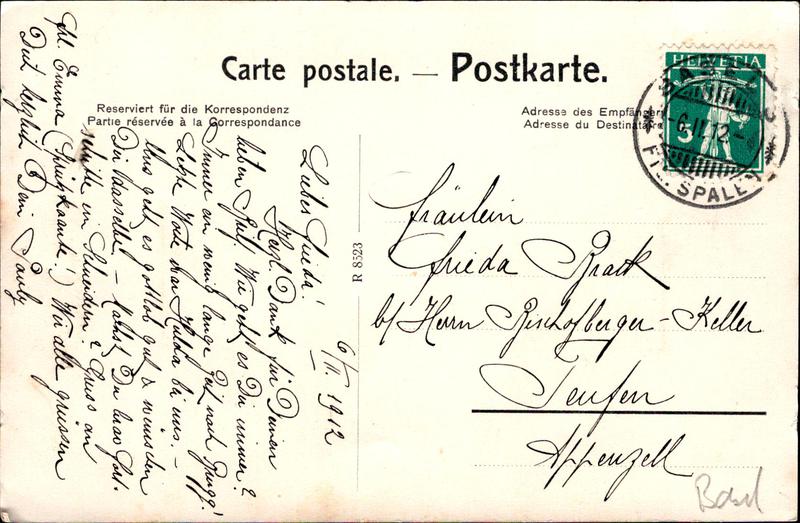 Carte postale. — Postkarte.
Reserviert für die Korrespondenz
Partie réservée à la Correspondance
Adresse des Empfängers
Adresse du Destinataire
HELVETIA
5
BASEL
-6.II.12.-
SPALE
R 8523
6/II. 1912
Liebes Frieda!
Herzl. Dank für Deinen
lieben Brief. Wie geht es Dir immer?
Immer ein wenig lange Zeit nach Brugg?
Letzte Woche war Hulda bei uns. –
Uns geht es gottlob gut & wünschen
Dir dasselbe. – Kannst Du
schnell in Schneidern? Gruss an
Frl. Emma Wir alle grüssen
Dich herzlich Dein Pauly
Fräulein
Frieda Brack
b/ Herrn Bischofberger-Keller
Teufen
Appenzell
Basel